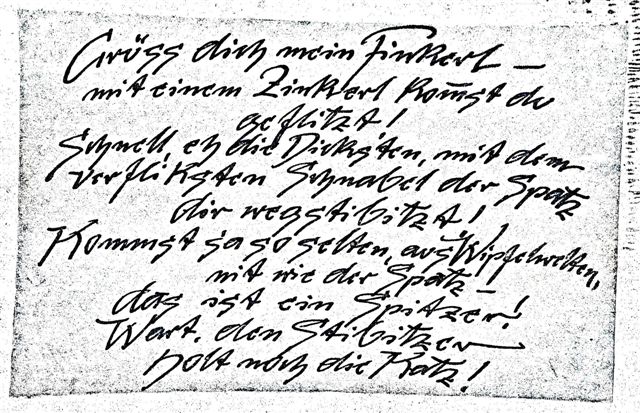 Grüss dich mein Finkerl —
mit einem Zinkerl kom̄st du
geflitzt!
Schnell, eh die Dicksten, mit dem
verflixten Schnabel der Spatz
dir wegstibitzt!
Kommst ja so selten, aus Wipfelwelten,
nit wie der Spatz —
das ist ein Spitzer!
Wart, den Stibitzer
holt noch die Katz!